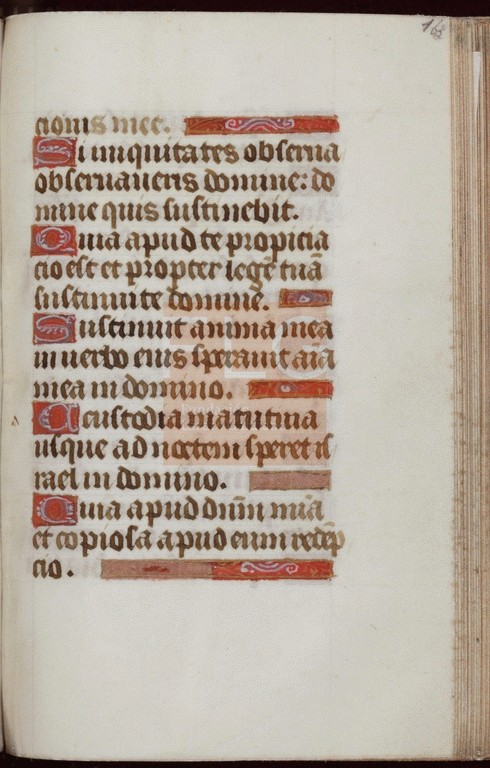 cionis mee.
Si iniquitates obserua
obseruaueris domine: do
mine quis sustinebit.
Quia apud te propicia
cio est et propter legē tuā
sustinui te domine.
Sustinuit anima mea
in uerbo eius sperauit aīa
mea in domino.
A custodia matutina
usque ad noctem speret is
rael in domino.
Quia apud dn̄m mīa
et copiosa apud eum redēp
cio.